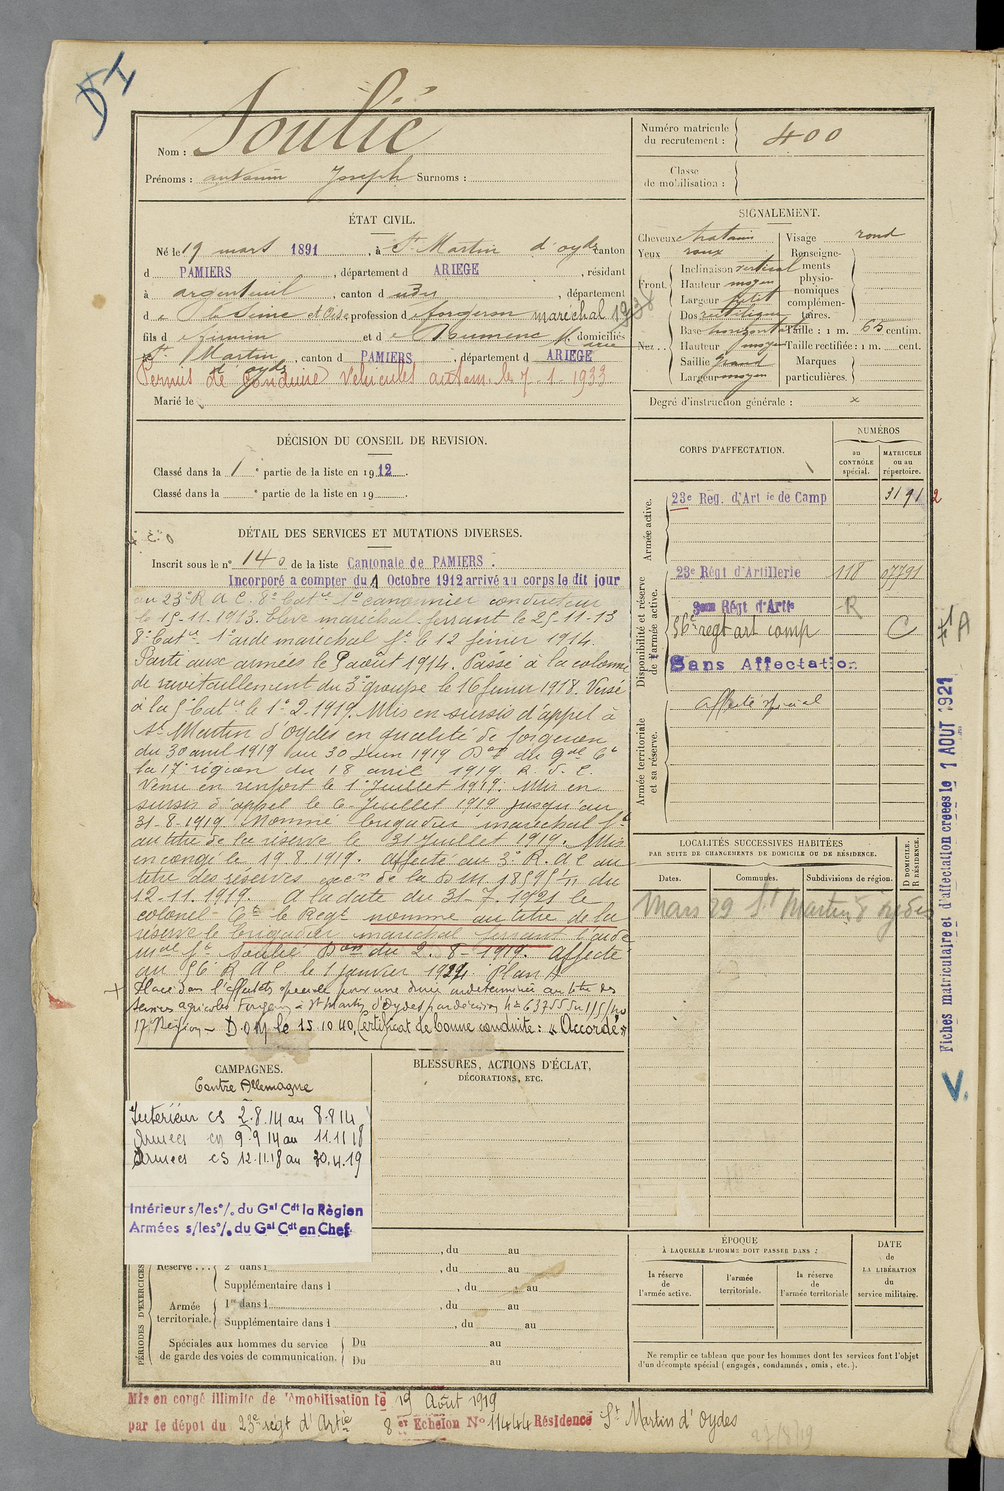 DI
Nom : Soulié
Prénoms : Antonin Joseph Surnoms :
Numéro matricule du recrutement : 400
Classe de mobilisation :
ÉTAT CIVIL.
Né le 19 mars 1891, à St Martin d'oydes canton
d PAMIERS, département d ARIEGE, résidant
à argenteuil, canton d udu, département
d e la Seine et Oise, profession de forgeron maréchal
fils d e Firmin et d e domiciliés
à St Martin d'oydes, canton d PAMIERS, département d ARIEGE
Permis de conduire Vehicules autom. le 7-1-1933
Marié le
SIGNALEMENT.
Cheveux chatains
Yeux roux
Front Inclinaison vertical
Hauteur moyen
Largeur petit
Nez Dos rectiligne
Base horizontale
Hauteur moyen
Saillie grand
Largeur moyen
Visage rond
Renseignements physionomiques complémentaires.
Taille : 1 m. 65 centim.
Taille rectifiée : 1 m. cent.
Marques particulières.
Degré d'instruction générale : x
DÉCISION DU CONSEIL DE REVISION.
Classé dans la 1e partie de la liste en 1912.
Classé dans la e partie de la liste en 19
CORPS D'AFFECTATION.
NUMÉROS
au CONTRÔLE spécial.
MATRICULE ou au répertoire.
Armée active.
23e Reg. d'Artie de Camp 3191 2
Disponibilité et réserve de l'armée active.
23e Régt d'Artillerie 118 07791
Régt d'Artie R
56e regt art comp C
Sans Affectation
Armée territoriale et sa réserve.
affecté spécial
DÉTAIL DES SERVICES ET MUTATIONS DIVERSES.
Inscrit sous le n° 140 de la liste Cantonale de PAMIERS.
Incorporé a compter du 1 Octobre 1912 arrivé au corps le dit jour
au 23e R A C. 8e Batie 1e canonnier conducteur
le 15-11-1913. Elève maréchal-ferrant le 25-11-13
8e Batie 1e aide maréchal ft le 12 février 1914.
Parti aux armées le 9 août 1914. Passé à la colonne
de ravitaillement du 3e groupe le 16 février 1918. Versé
à la 5e Batie le 1e 2.1919. Mis en sursis d'appel à
St Martin d'oydes en qualité de forgeron
du 30 avril 1919 au 30 Juin 1919 Don du Gal Ct
la 17e région du 18 avril 1919.
Venu en renfort le 1e Juillet 1919. Mis en
sursis d'appel le 6 Juillet 1919 jusqu'au
31-8-1919 Nommé brigadier maréchal ft
au titre de la réserve le 31 Juillet 1919. Mis
en congé le 19.8.1919. affecté au 3e R.A.C au
titre des réserves de la D M 18595 1/11 du
12-11-1919. A la date du 31-7-1921 le
colonel Ct le Regt nomme au titre de la
réserve le brigadier maréchal ferrant l'aide
mal ft Soulié Don du 2-8-1919. Affecté
au 56e R A C le 1 janvier 1924 Plan A
Placé dans l'affectation spéciale pour une durée indéterminée au titre des
services agricoles Forgeron à St Martin d'Oydes par décision
17e Région - D.O.M le 15.10.40. Certificat de bonne conduite : "Accordé"
LOCALITÉS SUCCESSIVES HABITÉES
PAR SUITE DE CHANGEMENTS DE DOMICILE OU DE RÉSIDENCE.
Dates. Communes. Subdivisions de région. D DOMICILE. R RÉSIDENCE.
Mars 29 St Martin d'oydes
Fiches matriculaire et d'affectation créées le 1 AOUT 1921
A
V.
CAMPAGNES.
Contre Allemagne
Intérieur CS 2.8.14 au 8.8.14
Armées en 9.9 14 au 11.11 18
Armées CS 12.11.18 au 30.4.19
Intérieur s/les°/. du Gal Cdt la Région
Armées s/les°/. du Gal Cdt en Chef
BLESSURES, ACTIONS D'ÉCLAT,
DÉCORATIONS, ETC.
PÉRIODES D'EXERCICES
, du au
Réserve... 2e dans l , du au
Supplémentaire dans l , du au
Armée territoriale. 1re dans l , du au
Supplémentaire dans l , du au
Spéciales aux hommes du service de garde des voies de communication. Du au
Du au
ÉPOQUE
À LAQUELLE L'HOMME DOIT PASSER DANS :
la réserve de l'armée active.
l'armée territoriale.
la réserve de l'armée territoriale
DATE de LA LIBÉRATION du service militaire.
Ne remplir ce tableau que pour les hommes dont les services font l'objet
d'un décompte spécial (engagés, condamnés, omis, etc.).
Mis en congé illimité de démobilisation le 19 Août 1919
par le dépot du 23e regt d'Artie 8 er Echelon N° 11444 Résidence St Martin d'oydes
27/8/19